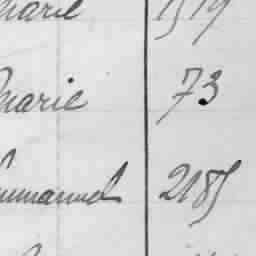 marie 1519
marie 73
Emmanuel 2185